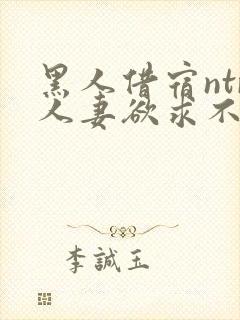 黑人借宿ntr
人妻欲求不
李誠玉